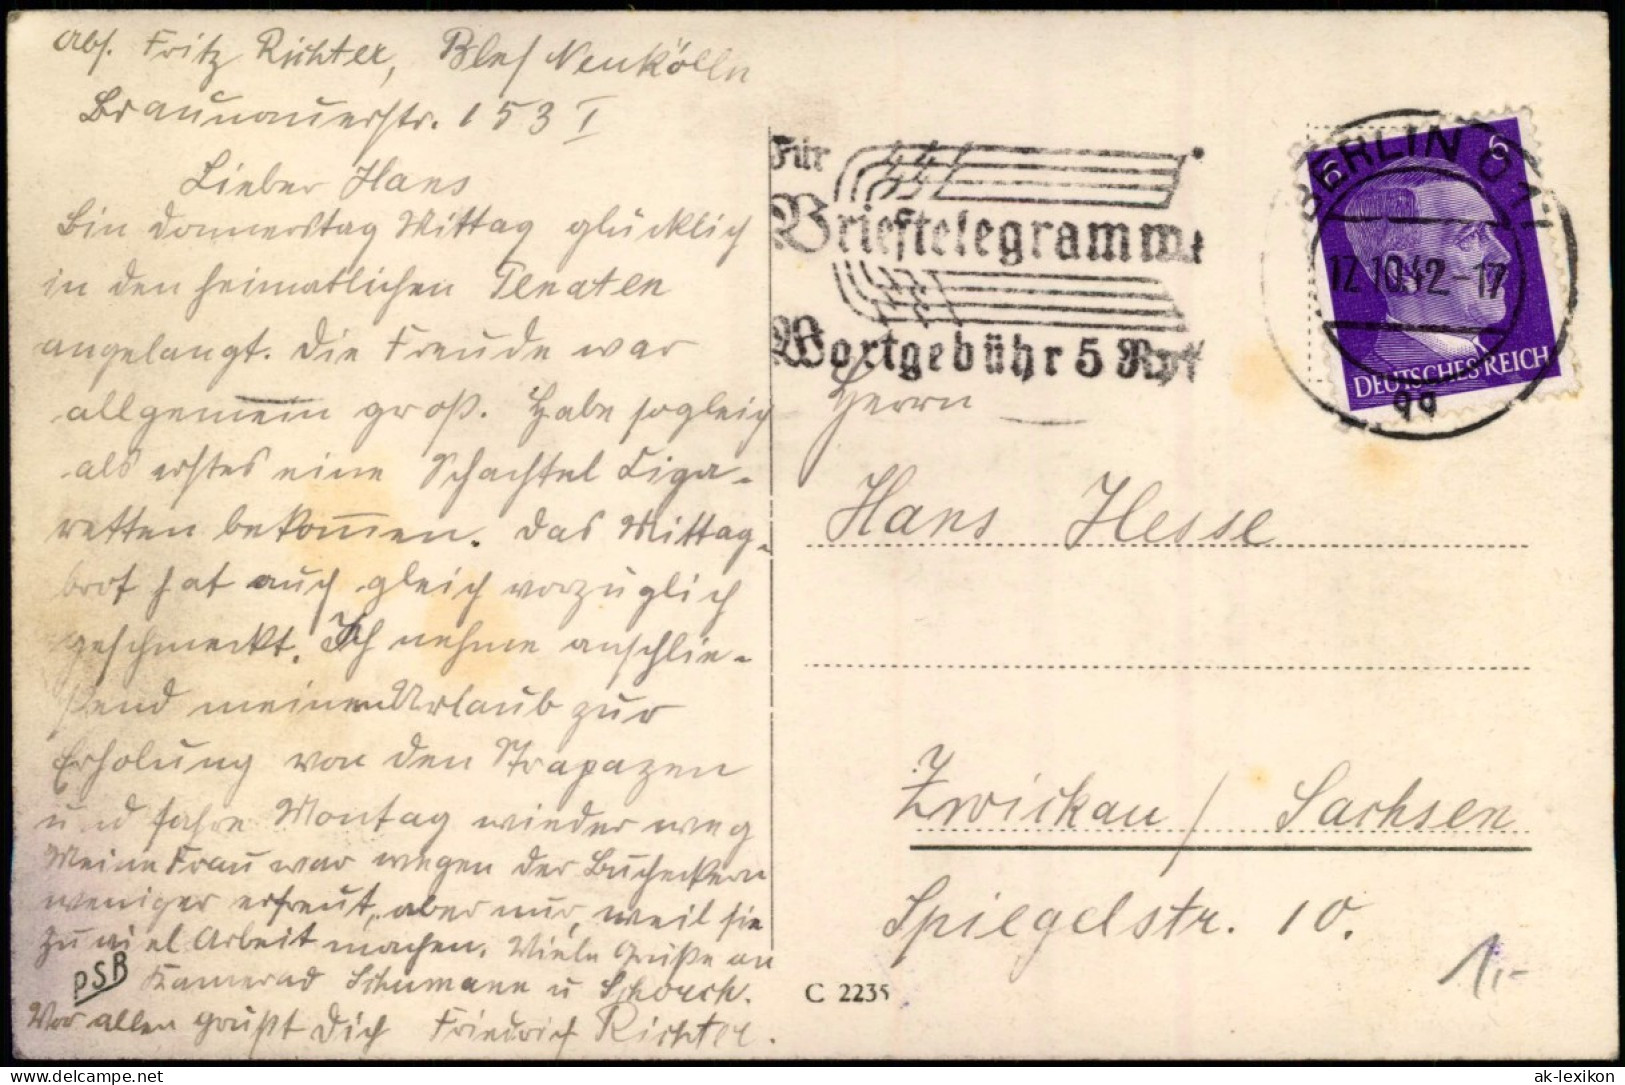 Abs. Fritz Richter, Bln/ Neukölln
Braunauerstr. 153 I
Lieber Hans
Bin Donnerstag Mittag glücklich
in den heimatlichen Penaten
angelangt. Die Freude war
allgemein groß. Habe sogleich
als erstes eine Schachtel Ziga-
retten bekommen. Das Mittag-
brot hat auch gleich vorzüglich
geschmeckt. Ich nehme anschlie-
ßend meinen Urlaub zur
Erholung von den Strapazen
und fahre Montag wieder weg
Meine Frau war wegen der Bucheckern
weniger erfreut, aber nur, weil sie
zu viel Arbeit machen. Viele Grüße an
Kamerad Schumann u Schorch.
Vor allen grüßt Dich Friedrich Richter.
PSB
Für
Brieftelegramme
Wortgebühr 5 Rpf
BERLIN O 17
17.10.42-17
99
6 6
DEUTSCHES REICH
Herrn
Hans Hesse
Zwickau / Sachsen
Spiegelstr. 10.
1,-
C 2235
www.ansichtskarten-lexikon.de
ak-lexikon